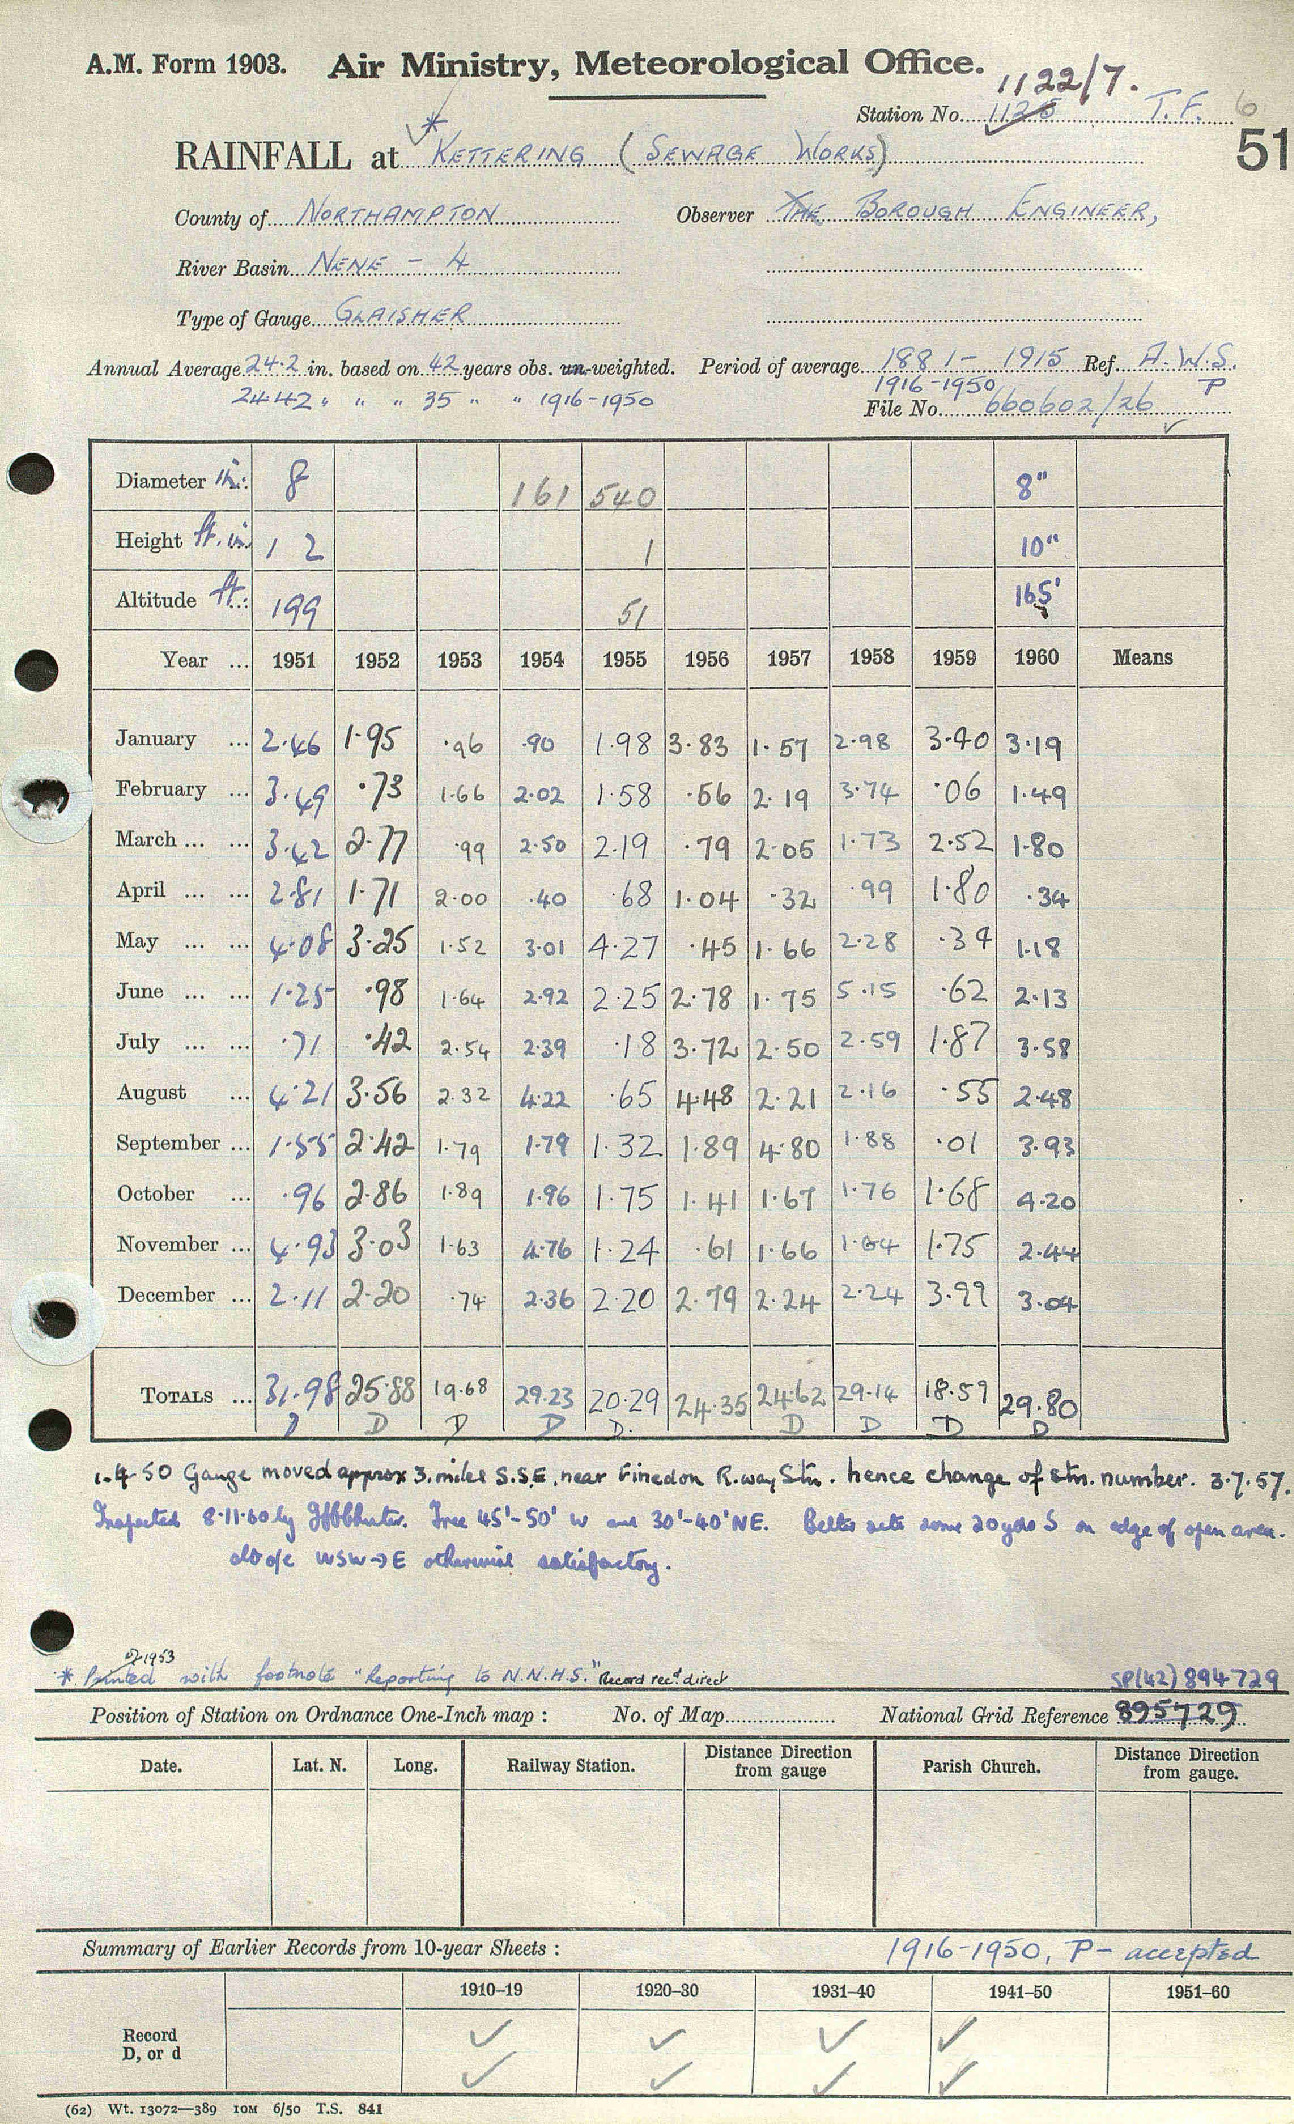 A.M. Form 1903. Air Ministry, Meteorological Office.
1122/7.
Station No. 1125 T.F. 6
51
RAINFALL at * KETTERING (SEWAGE WORKS)
County of NORTHAMPTON Observer THE BOROUGH ENGINEER,
River Basin NENE - 4
Type of Gauge GLAISHER
Annual Average 24.2 in. based on 42 years obs. un-weighted. Period of average 1881- 1915 Ref. A.W.S.
1916-1950 P
24.42 " " " 35 " " 1916-1950 File No. 660602/26
Diameter in: 8 161 540 8"
Height ft. in 1 2 1 10"
Altitude ft.: 199 51 165'
Year ... 1951 1952 1953 1954 1955 1956 1957 1958 1959 1960 Means
January ... 2.46 1.95 .96 .90 1.98 3.83 1.57 2.98 3.40 3.19
February ... 3.49 .73 1.66 2.02 1.58 .56 2.19 3.74 .06 1.49
March ... ... 3.42 2.77 .99 2.50 2.19 .79 2.05 1.73 2.52 1.80
April ... ... 2.81 1.71 2.00 .40 .68 1.04 .32 .99 1.80 .34
May ... ... 4.08 3.25 1.52 3.01 4.27 .45 1.66 2.28 .34 1.18
June ... ... 1.25 .98 1.64 2.92 2.25 2.78 1.75 5.15 .62 2.13
July ... ... .71 .42 2.54 2.39 .18 3.72 2.50 2.59 1.87 3.58
August ... 4.21 3.56 2.32 4.22 .65 4.48 2.21 2.16 .55 2.48
September ... 1.55 2.42 1.79 1.79 1.32 1.89 4.80 1.88 .01 3.93
October ... .96 2.86 1.89 1.96 1.75 1.41 1.67 1.76 1.68 4.20
November ... 4.93 3.03 1.63 4.76 1.24 .61 1.66 1.64 1.75 2.44
December ... 2.11 2.20 .74 2.36 2.20 2.79 2.24 2.24 3.99 3.04
TOTALS ... 31.98 25.88 19.68 29.23 20.29 24.35 24.62 29.14 18.59 29.80
D D D D D. D D D D
1.4.50 Gauge moved approx 3 miles S.S.E. near Finedon R.way Stn. hence change of stn. number. 3.7.57.
Inspected 8.11.60 by Tree 45'-50' W and 30'-40' NE. Better site some 20 yds S on edge of open area.
WSW→E otherwise satisfactory.
1953
* Printed with footnote "Reporting to N.N.H.S." Record rec.d direct SP(42) 894729
Position of Station on Ordnance One-Inch map : No. of Map National Grid Reference 895729
Date. Lat. N. Long. Railway Station. Distance Direction from gauge Parish Church. Distance Direction from gauge.
Summary of Earlier Records from 10-year Sheets : 1916-1950, P- accepted
1910-19 1920-30 1931-40 1941-50 1951-60
Record ✓ ✓ ✓ ✓
D, or d ✓ ✓ ✓ ✓
(62) Wt. 13072—389 10M 6/50 T.S. 841